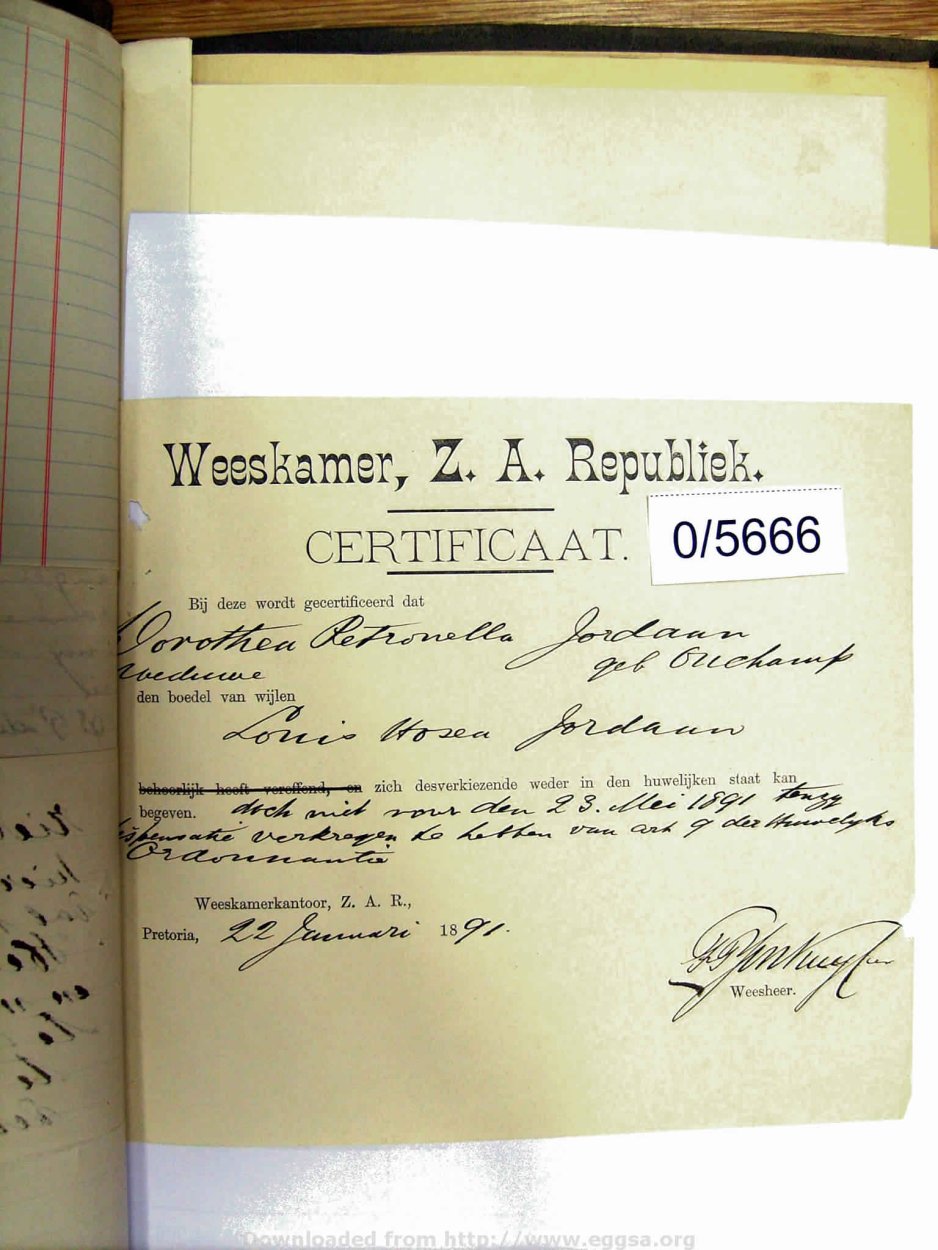 Weeskamer, Z. A. Republiek.
CERTIFICAAT.
0/5666
Bij deze wordt gecertificeerd dat
Dorothea Petronella Jordaan
weduwe geb Ouchamp
den boedel van wijlen
Louis Hosea Jordaan
behoorlijk heeft vereffend, en zich desverkiezende weder in den huwelijken staat kan
begeven. doch niet voor den 23. Mei 1891 tenzy
dispensatie verkregen te hebben van art 9 der Huwelyks
Ordonnantie
Weeskamerkantoor, Z. A. R.,
Pretoria, 22 Januari 1891.
Weesheer.
Downloaded from http://www.eggsa.org